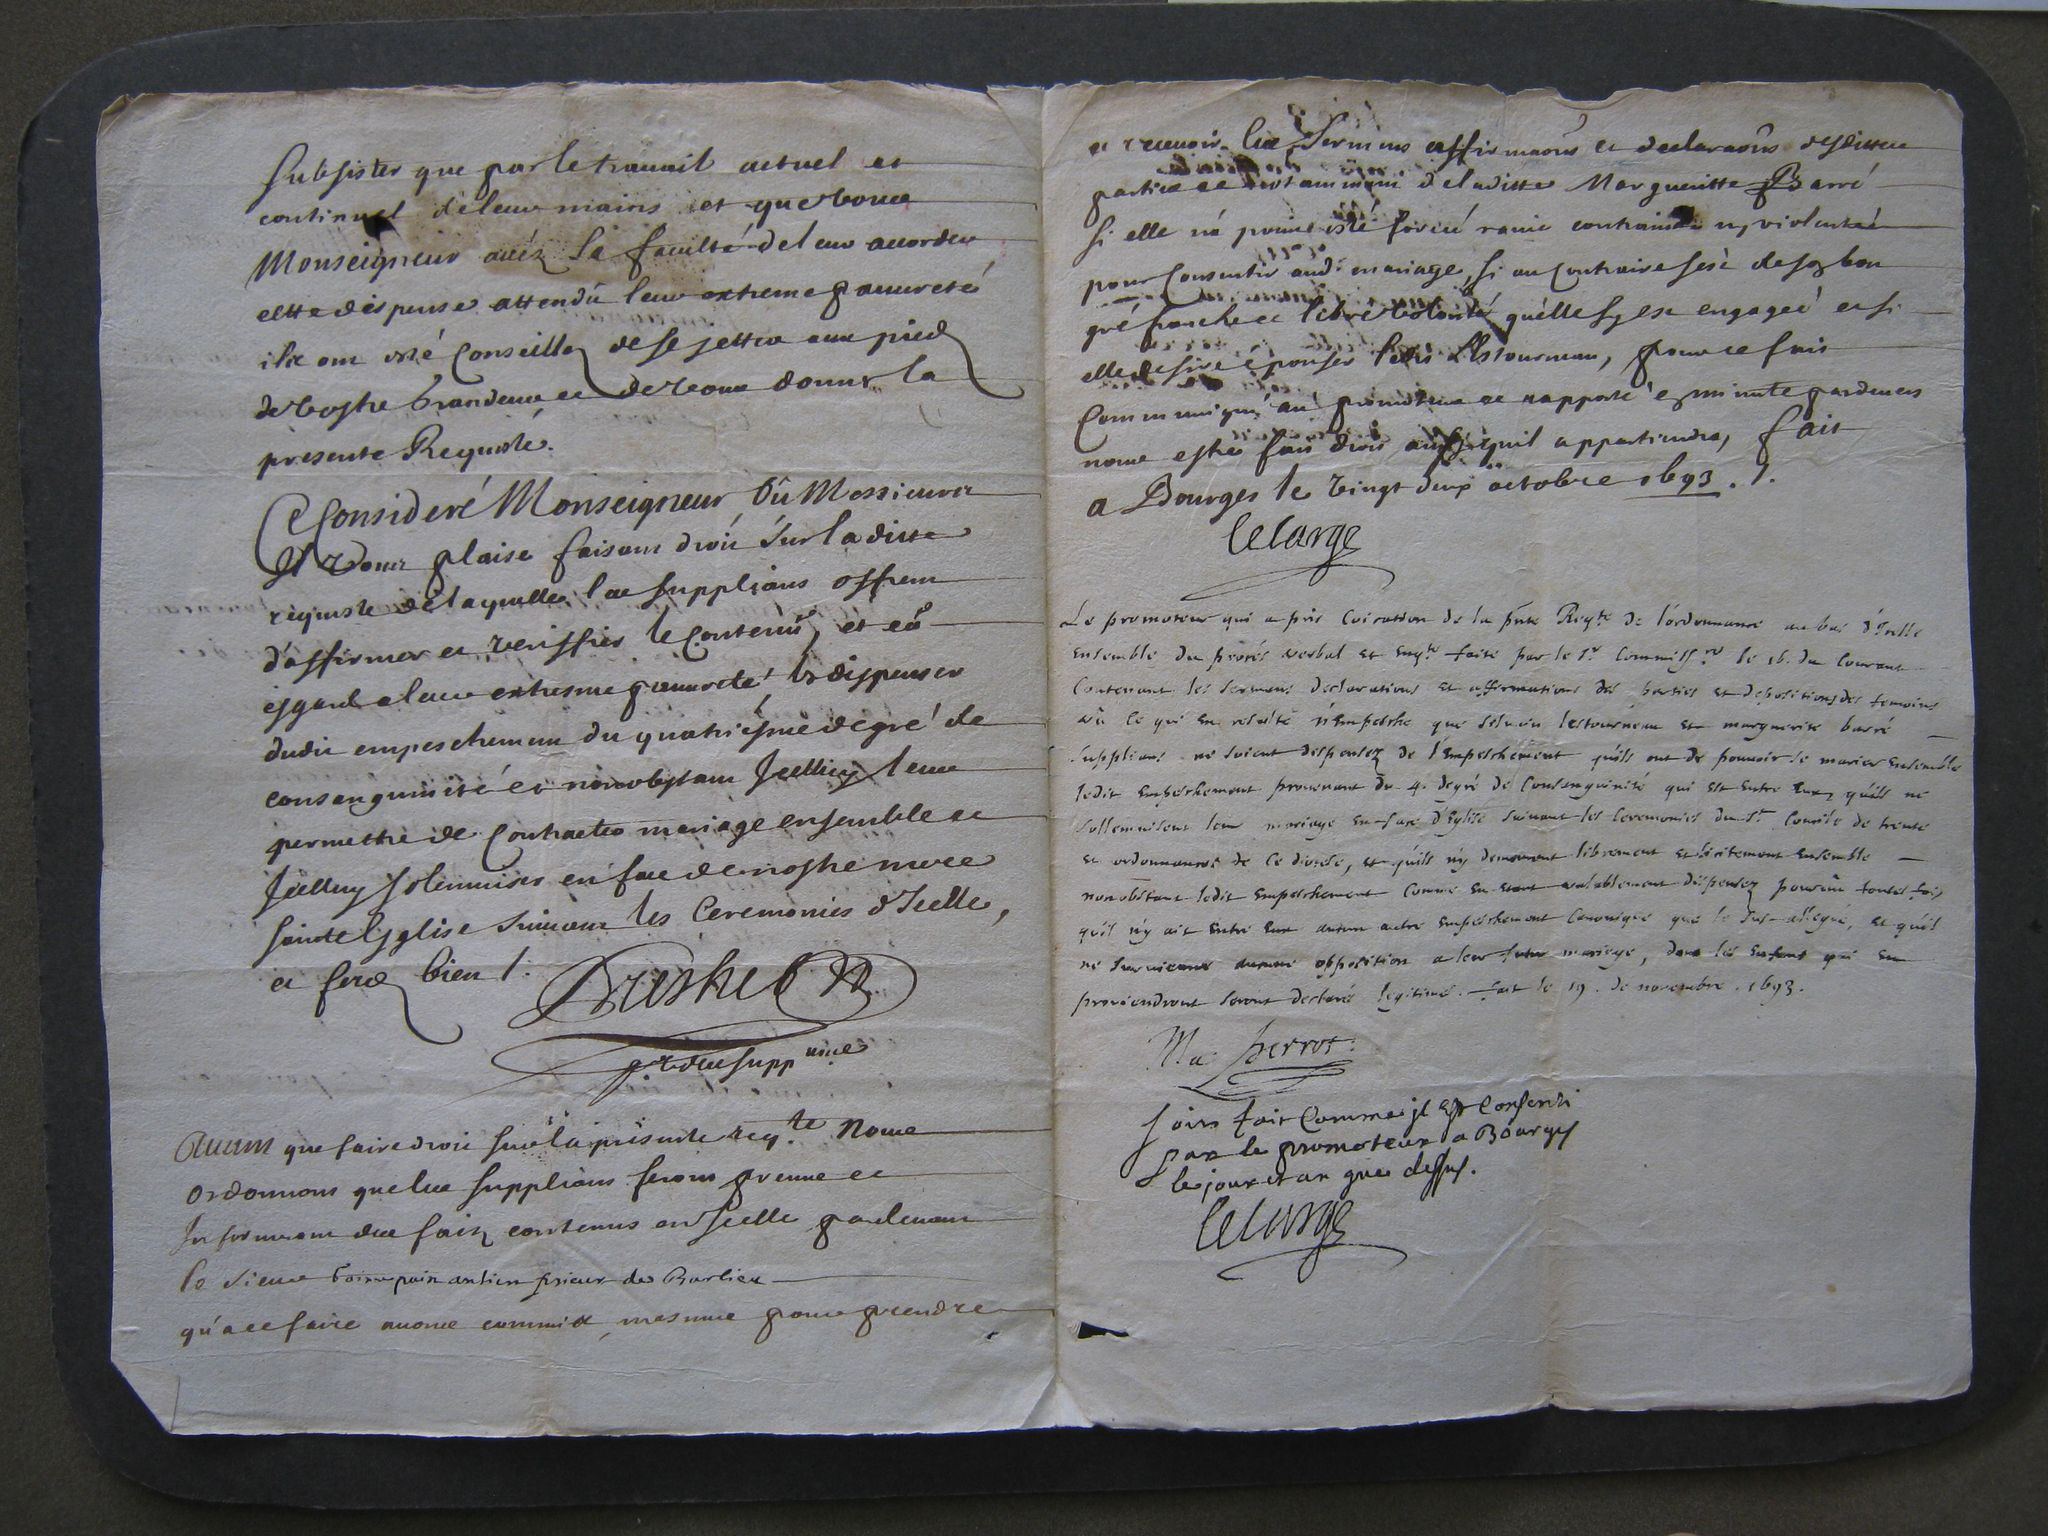 subsister que par le travail actuel et
continuel de leur mains et que vous
Monseigneur avéz la faculté de leur accorder
cette dispense attendu leur extreme pauvreté
ils ont esté Conseillez de se jetter aux pieds
de vostre Grandeur et de vous donner la
presente Requeste.
Ce Consideré Monseigneur Ou Messieurs
Il vous plaise faisant droit sur laditte
requeste de laquelle les supplians offrent
d'affirmer et veriffier le Contenu, et eu
esgard a leur extresme pauvreté les dispenser
dudit empeschement du quatriesme degré de
consanguinité et nonobstant Icelluy leur
permettre de Contracter mariage ensemble et
Icelluy solenniser en face de nostre mere
sainte Eglise suivant les Ceremonies d'Icelle,
et ferez bien /.
pr des suppliants
Avant que faire droit sur la presente reqte Nous
ordonnons que les supplians feront preuve et
Informeront des faits contenus en Icelle pardevant
le sieur antien prieur de Barlieu
qu'a ce faire avons commis, mesme pour prendre
et recevoir les sermens affirmaons et declaraons desdittes
parties et notamment de laditte Margueritte Barré
si elle n'a point esté forcé ravie contrainte ny violentée
pour Consentir aud. mariage, si au Contraire sest de son bon
gré franche et libre volonté quelle sy est engageé et si
elle desire épouser ledit Lestourneau, pour ce fait
Communiqué au promoteur et rapporté en minute pardevers
nous estre fait droit ainsy quil appartiendra, fait
a Bourges le vingt deux octobre 1693. /.
Lelarge
Le promoteur qui a pris Coication de la pnte Reqte de lordonnance au bas d'Icelle
Ensemble du procés verbal et Enqte faite par le Sr Commissre le 16. du Courant
Contenant les sermens declarations et affirmations des parties et depositions des temoins
vû ce qui en resulte n'Empesche que Silvain lestourneau et marguerite barré
supplians ne soient dispensez de l'Empeschement quils ont de pouvoir se marier Ensemble
ledit Empeschement provenant du 4. degré de Consanguinité qui est entre Eux, quils ne
sollemnisent leur mariage En face d'Eglise suivant les Ceremonies du St Concile de trente
et ordonnances de ce diocese, et quils n'y demeurent librement et licitement Ensemble
nonobstant ledit Empeschement Comme En étant valablement dispensez pourvu toutes fois
quil n'y ait Entre Eux aucun autre Empeschement Canonique que le sus-allegué, et quil
ne survienne aucune opposition a leur futur mariage, dont les Enfans qui En
proviendront seront declarés legitimes. fait le 19. de novembre. 1693.
Ma Perrot.
Soit fait Comme jl est Consenti
par le promoteur a Bourges
le jour et an que dessus.
Lelarge